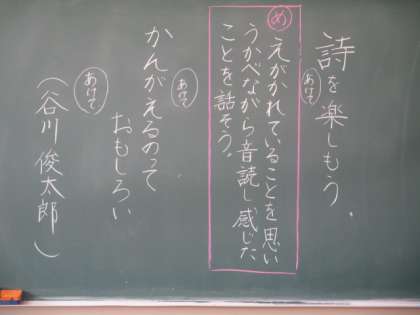 詩を楽しもう.
あけて
め
えがかれていることを思い
うかべながら音読し、感じた
ことを話そう。
あけて
かんがえるのって
おもしろい
あけて
（谷川俊太郎）